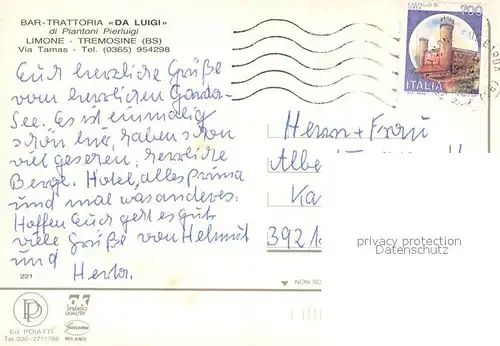 BAR-TRATTORIA «DA LUIGI»
di Piantoni Pierluigi
LIMONE - TREMOSINE (BS)
Via Tamas - Tel. (0365) 954298
700
CASTELLO DI
ITALIA
Euch herzliche Grüße
vom herrlichen Garda-
See. Es ist einmalig
schön hier, haben schon
viel gesehen, herrliche
Berge. Hotel, alles prima
und mal was anderes.
Hoffen Euch geht es gut
viele Grüße von Helmut
und
Herta.
Herrn + Frau
Albe
Ka
3921
privacy protection
Datenschutz
221
NON SC
Ed. POIATTI
Tel. 030-2711798
MILANO